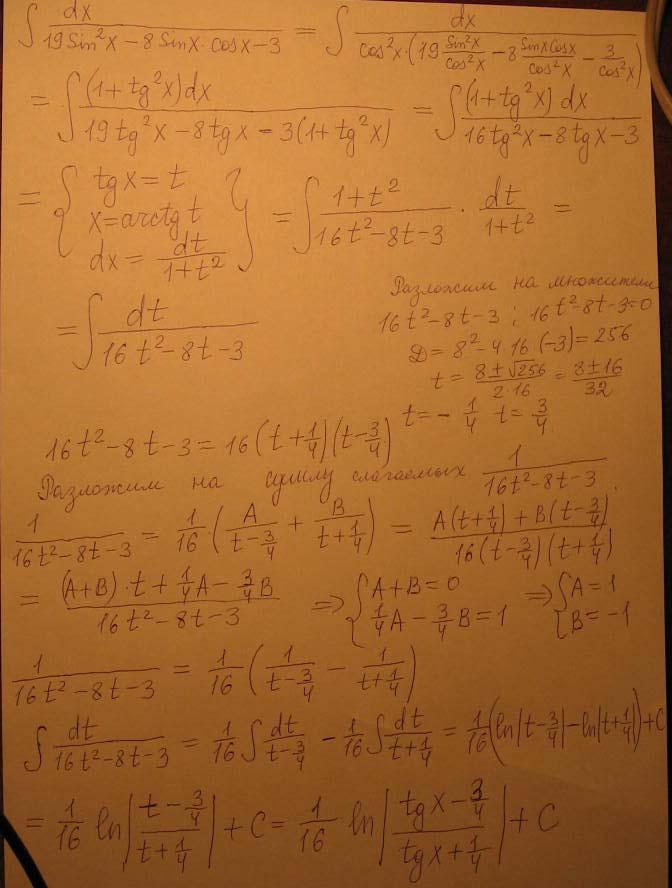 ∫ dx / (19 Sin²x − 8 Sinx · cosx − 3) = ∫ dx / (cos²x · (19 Sin²x/cos²x − 8 Sinx Cosx/cos²x − 3/cos²x))
= ∫ (1 + tg²x) dx / (19 tg²x − 8 tgx − 3(1 + tg²x)) = ∫ (1 + tg²x) dx / (16 tg²x − 8 tgx − 3)
= { tgx = t
x = arctg t
dx = dt / (1 + t²) } = ∫ (1 + t²) / (16t² − 8t − 3) · dt / (1 + t²) =
= ∫ dt / (16t² − 8t − 3)
Разложим на множители
16t² − 8t − 3 ; 16t² − 8t − 3 = 0
D = 8² − 4 16 · (−3) = 256
t = (8 ± √256) / (2·16) = (8 ± 16) / 32
t = − 1/4 t = 3/4
16t² − 8t − 3 = 16 (t + 1/4)(t − 3/4)
Разложим на сумму слагаемых 1 / (16t² − 8t − 3).
1 / (16t² − 8t − 3) = 1/16 · (A / (t − 3/4) + B / (t + 1/4)) = (A(t + 1/4) + B(t − 3/4)) / (16(t − 3/4)(t + 1/4))
= ((A + B) · t + 1/4 A − 3/4 B) / (16t² − 8t − 3) ⇒ { A + B = 0
1/4 A − 3/4 B = 1 ⇒ { A = 1
B = −1
1 / (16t² − 8t − 3) = 1/16 (1 / (t − 3/4) − 1 / (t + 1/4))
∫ dt / (16t² − 8t − 3) = 1/16 ∫ dt / (t − 3/4) − 1/16 ∫ dt / (t + 1/4) = 1/16 (ln|t − 3/4| − ln|t + 1/4|) + C
= 1/16 ln |(t − 3/4) / (t + 1/4)| + C = 1/16 ln |(tgx − 3/4) / (tgx + 1/4)| + C